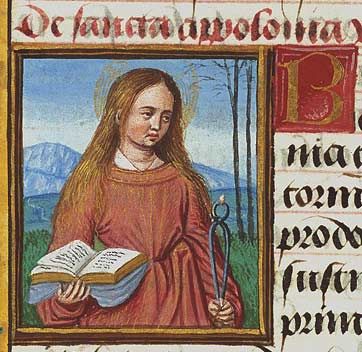 De sancta appolonia
B
nia
torm
prodo
sust
prim